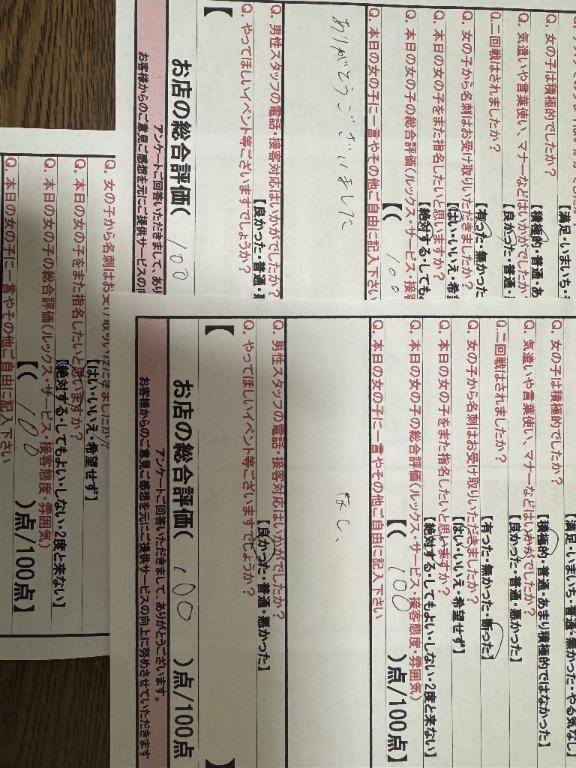 Q. 女の子は積極的でしたか？
【積極的・普通・あ
Q. 気遣いや言葉使い、マナーなどはいかがでしたか？
【良かった・普通・
Q. 二回戦はされましたか？
【有った・無かった
Q. 女の子から名刺はお受け取りいただきましたか？
【はい・いいえ・希
Q. 本日の女の子をまた指名したいと思いますか？
【絶対する・してもよ
Q. 本日の女の子の総合評価（ルックス・サービス・接客
【（ 100
Q. 本日の女の子に一言やその他ご自由に記入下さい
ありがとうございました
Q. 男性スタッフの電話・接客対応はいかがでしたか？
【良かった・普通・
Q. やってほしいイベント等ございますでしょうか？
【
お店の総合評価（ 100
アンケートご回答いただきまして、あり
お客様からのご意見ご感想を元にご提供サービスの向
Q. 女の子から名刺はお受け取りいただきましたか？
【はい・いいえ・希望せず】
Q. 本日の女の子をまた指名したいと思いますか？
【絶対する・してもよい・しない・2度と来ない】
Q. 本日の女の子の総合評価（ルックス・サービス・接客態度・雰囲気）
【（ 100 ）点/100点】
Q. 本日の女の子に一言やその他ご自由に記入下さい
満足・いまいち・普通・無かった・やる気なし
Q. 女の子は積極的でしたか？
【積極的・普通・あまり積極的ではなかった】
Q. 気遣いや言葉使い、マナーなどはいかがでしたか？
【良かった・普通・悪かった】
Q. 二回戦はされましたか？
【有った・無かった・断った】
Q. 女の子から名刺はお受け取りいただきましたか？
【はい・いいえ・希望せず】
Q. 本日の女の子をまた指名したいと思いますか？
【絶対する・してもよい・しない・2度と来ない】
Q. 本日の女の子の総合評価（ルックス・サービス・接客態度・雰囲気）
【（ 100 ）点/100点】
Q. 本日の女の子に一言やその他ご自由に記入下さい
なし、
Q. 男性スタッフの電話・接客対応はいかがでしたか？
【良かった・普通・悪かった】
Q. やってほしいイベント等ございますでしょうか？
【 】
お店の総合評価（ 100 ）点/100点
アンケートご回答いただきまして、ありがとうございます。
お客様からのご意見ご感想を元にご提供サービスの向上に努めさせていただきます